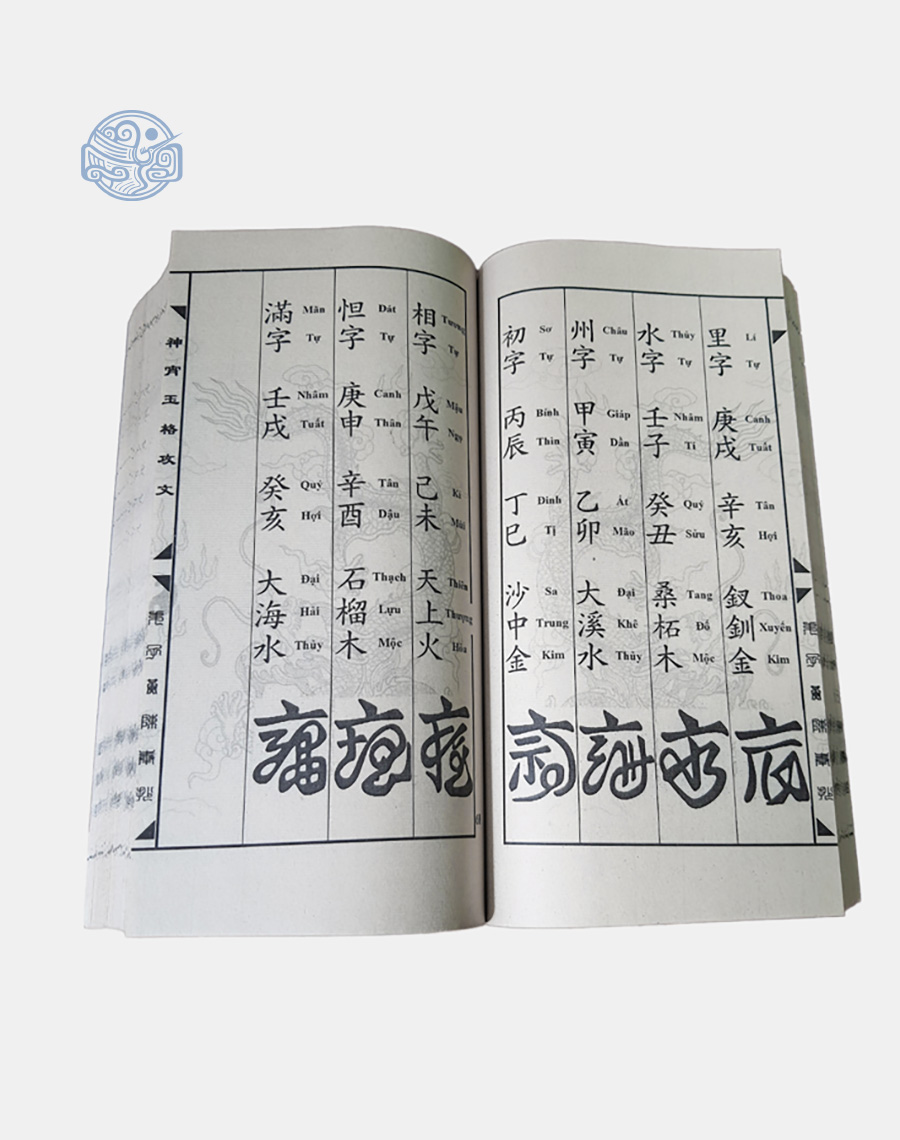 里字 庚戌 辛亥 釵釧金
Lí Tự Canh Tuất Tân Hợi Thoa Xuyến Kim
水字 壬子 癸丑 桑柘木
Thủy Tự Nhâm Tí Quý Sửu Tang Đố Mộc
州字 甲寅 乙卯 大溪水
Châu Tự Giáp Dần Ất Mão Đại Khê Thủy
初字 丙辰 丁巳 沙中金
Sơ Tự Bính Thìn Đinh Tị Sa Trung Kim
相字 戊午 己未 天上火
Tương Tự Mậu Ngọ Kỉ Mùi Thiên Thượng Hỏa
怛字 庚申 辛酉 石榴木
Dát Tự Canh Thân Tân Dậu Thạch Lựu Mộc
滿字 壬戌 癸亥 大海水
Mãn Tự Nhâm Tuất Quý Hợi Đại Hải Thủy
神宵玉格攻文